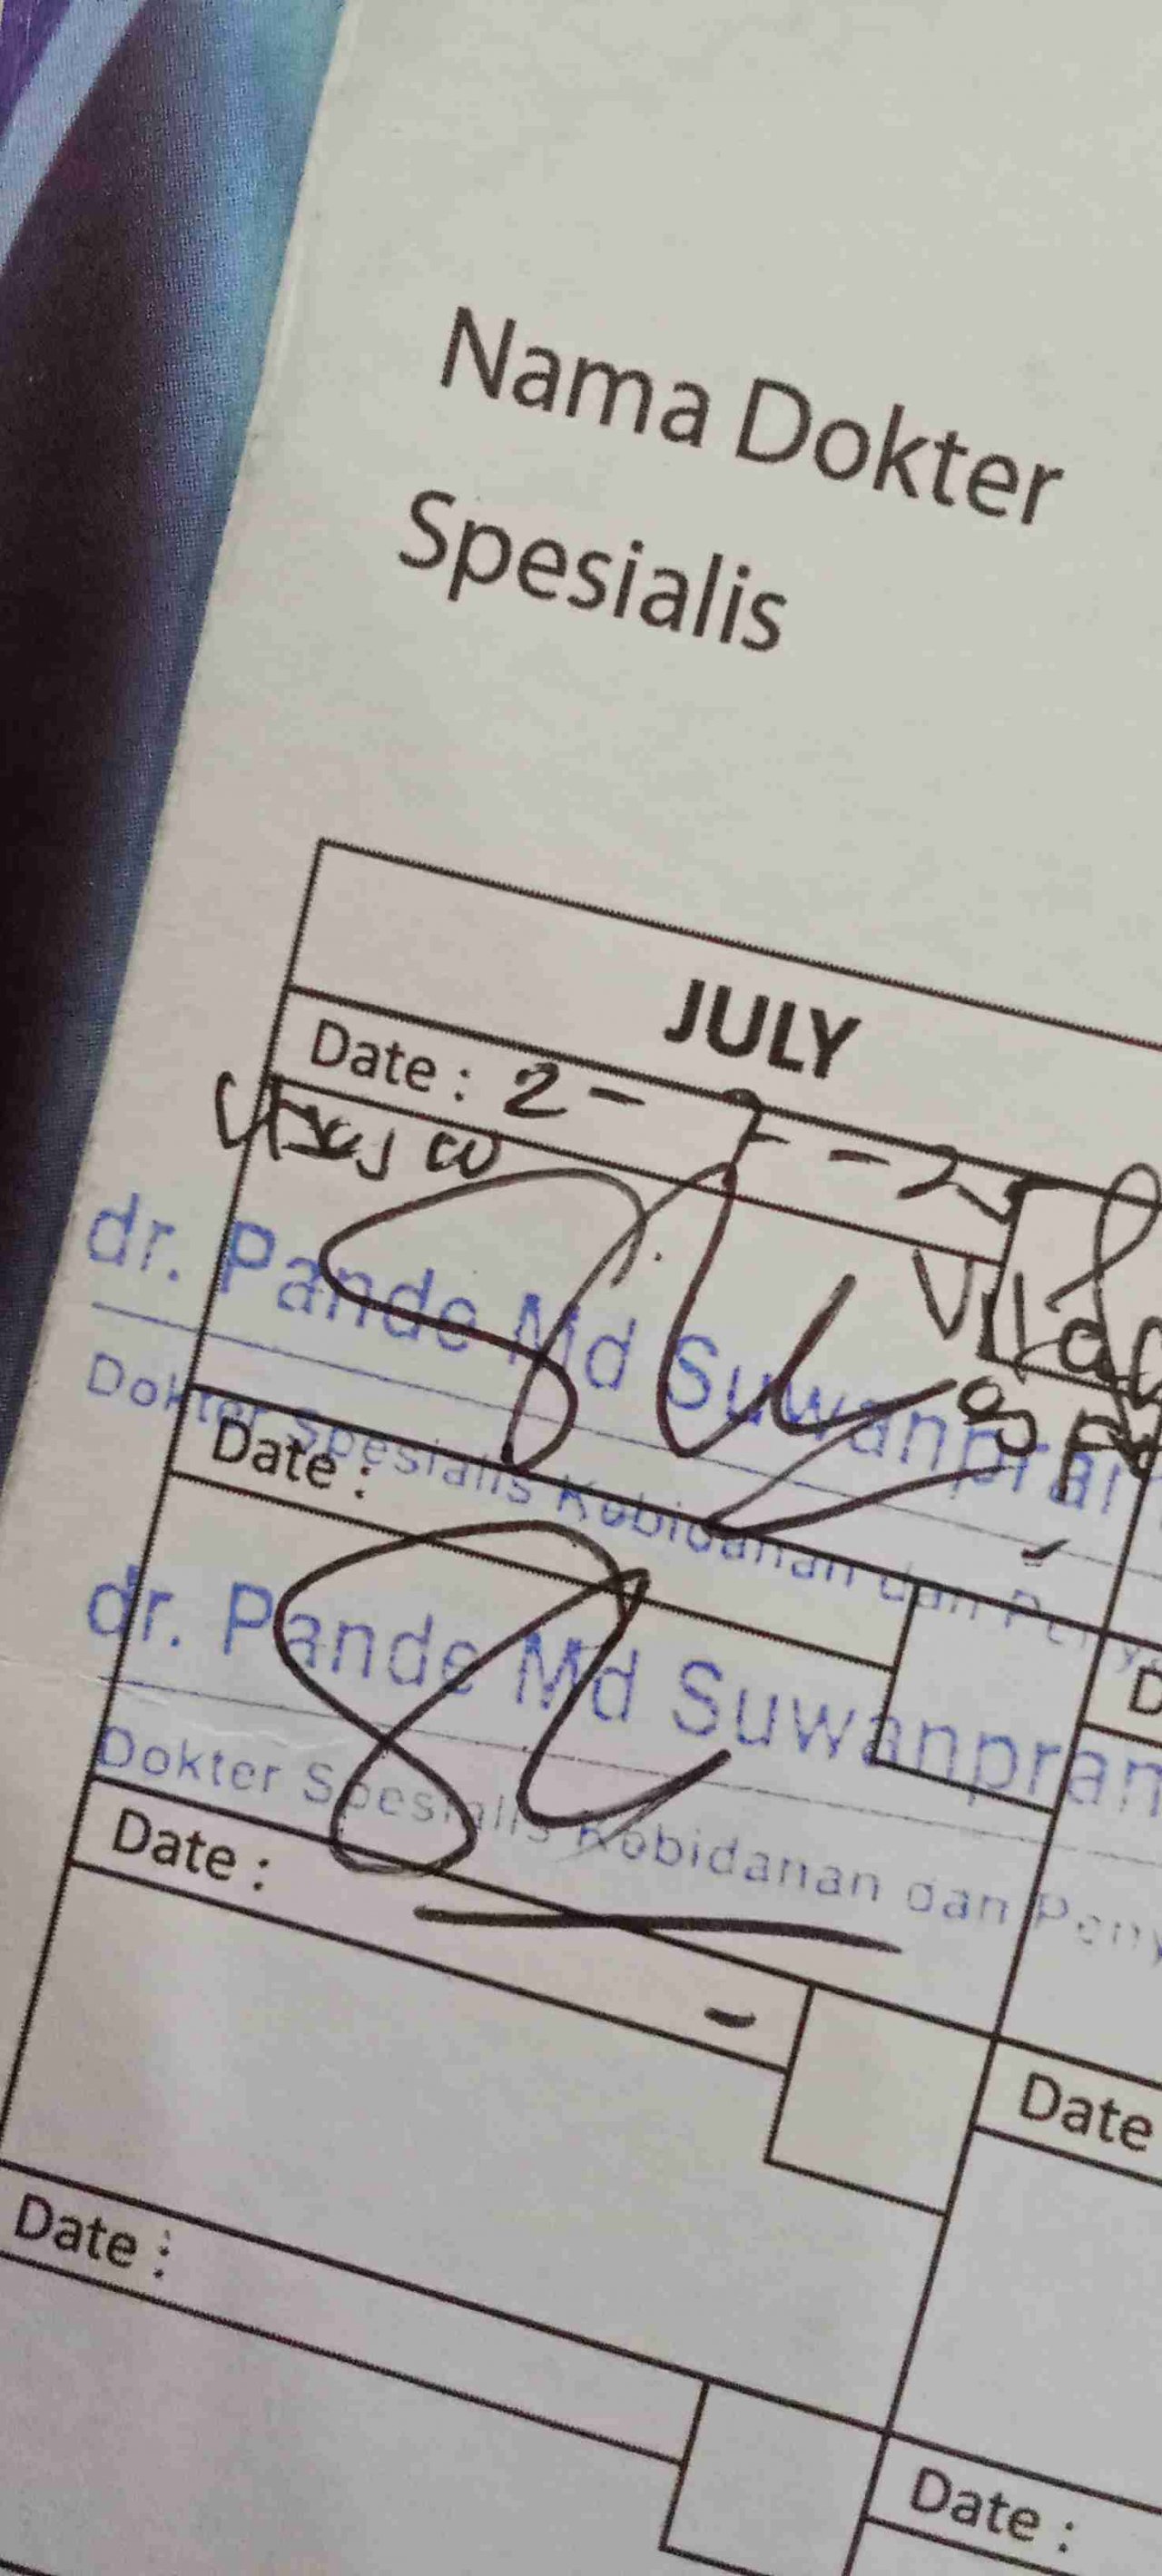 Nama Dokter
Spesialis
JULY
Date : 2 - 7 - 25
dr. Pande Md Suwanpra
Dokter Spesialis Kebidanan dan Peny
Date :
dr. Pande Md Suwanpran
Dokter Spesialis Kebidanan dan Peny
D
Date :
Date
Date :
Date :